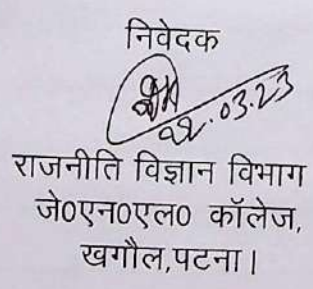 निवेदक
22.03.23
राजनीति विज्ञान विभाग
जे0एन0एल0 कॉलेज,
खगौल,पटना।